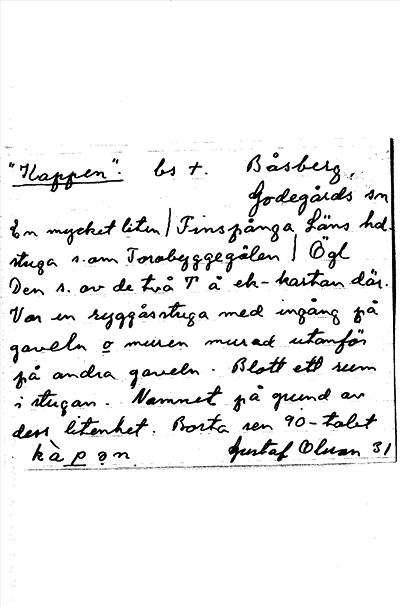 "Kappen". bs +. Båsberg,
Godegårds sn
En mycket liten | Finspånga Läns hd.
stuga s.om Torabyggegölen | Ögl
Den s. av de två T å ek-kartan där.
Var en ryggåsstuga med ingång på
gaveln o muren murad utanför
på andra gaveln. Blott ett rum
i stugan. Namnet på grund av
dess litenhet. Borta sen 90-talet
kàpən Gustaf Olsson 31